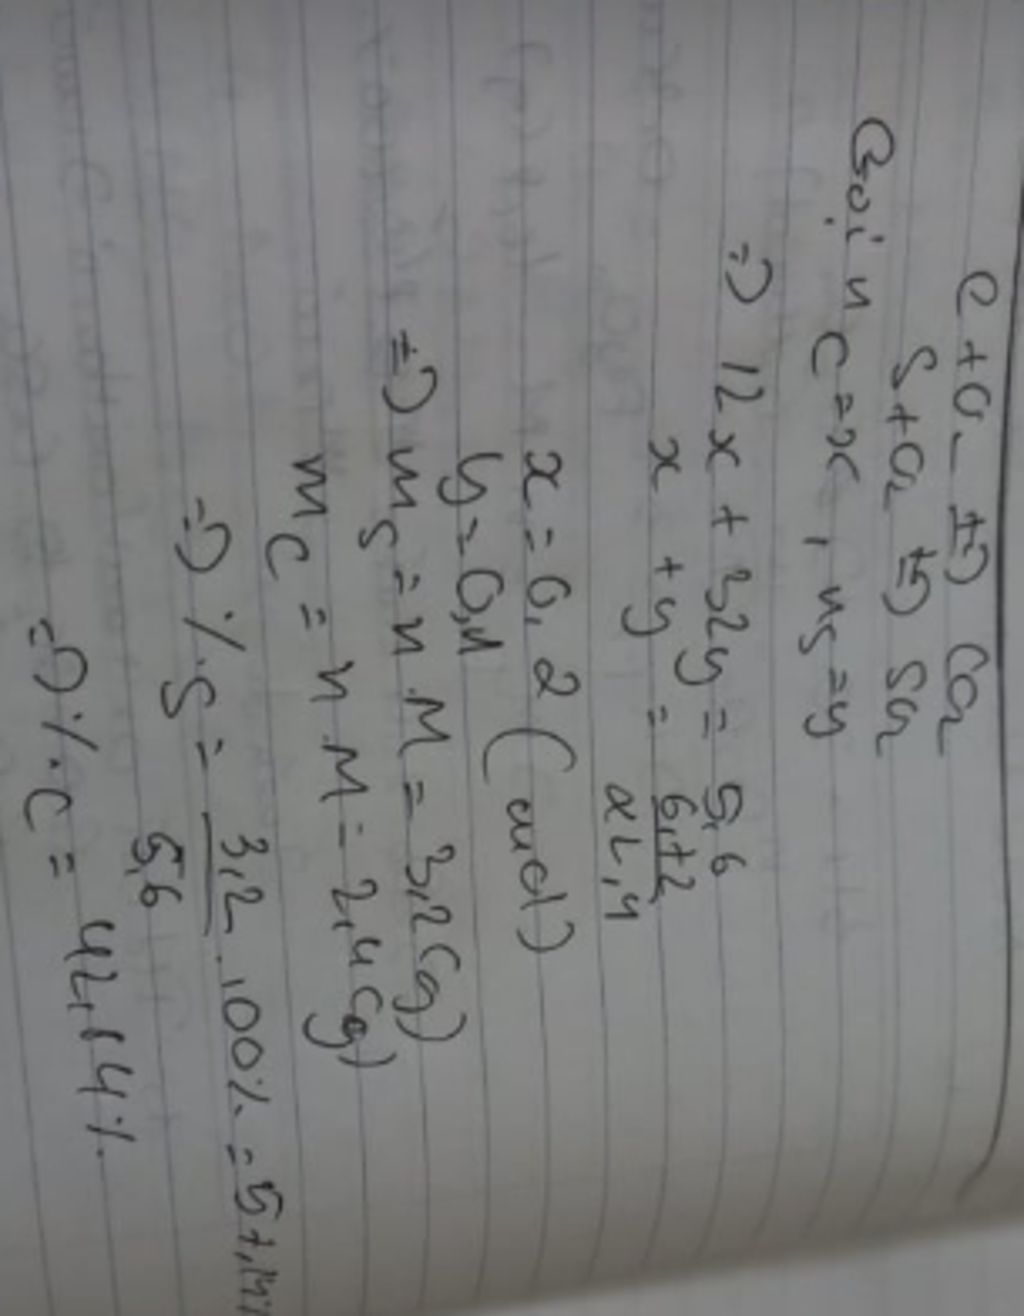 C + O2 t°→ CO2
S + O2 t°→ SO2
Gọi nC = x, nS = y
=> 12x + 32y = 5,6
x + y = 6,72/22,4
x = 0,2 (mol)
y = 0,1
=> mS = n.M = 3,2 (g)
mC = n.M = 2,4 (g)
=> %S = 3,2/5,6 .100% = 57,14%
=> %C = 42,84%